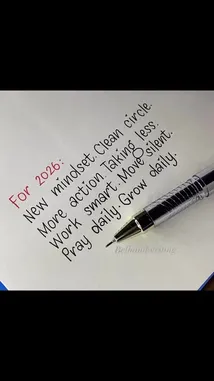 For 2026:
New mindset. Clean circle.
More action. Taking less.
Work smart. Move silent.
Pray daily. Grow daily.